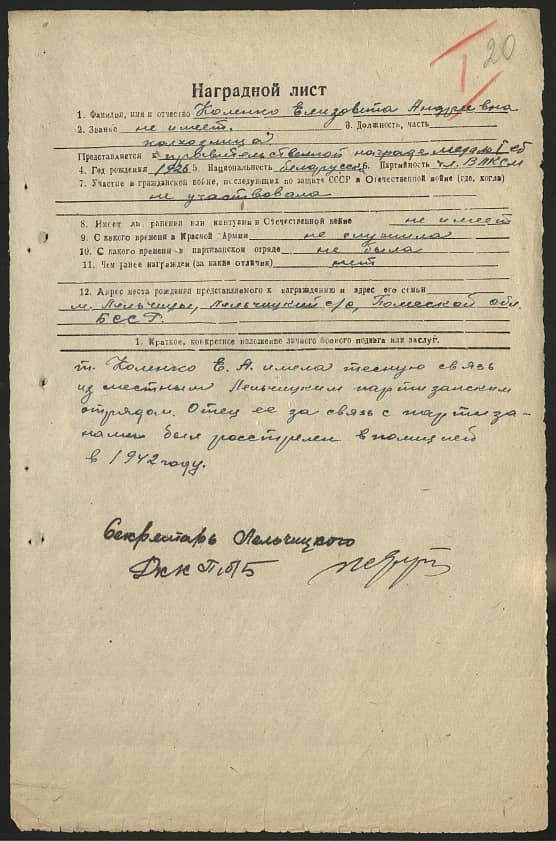 I 20
Наградной лист
1. Фамилия, имя и отчество Коленко Елизовета Андреевна
2. Звание не имеет. 3. Должность, часть
Представляется к правительственной награде медаль I ст
4. Год рождения 1926 5. Национальность белорусск 6. Партийность чл. ВЛКСМ
7. Участие в гражданской войне, последующих по защите СССР и Отечественной войне (где, когда)
не участвовала
8. Имеет ли ранения или контузии в Отечественной войне не имеет
9. С какого времени в Красной Армии не служила
10. С какого времени в партизанском отряде не была
11. Чем ранее награжден (за какие отличия) нет
12. Адрес места рождения представляемого к награждению и адрес его семьи
м. Лельчицы, Лельчицкий с/с, Полеской обл.
БССР.
1. Краткое, конкретное изложение личного боевого подвига или заслуг.
т. Коленко Е. А. имела тесную связь
из местным Лельчицким партизанским
отрядом. Отец ее за связь с партиза-
нами был расстрелен полицией
в 1942 году.
Секретарь Лельчицкого
РКК П/б/Б